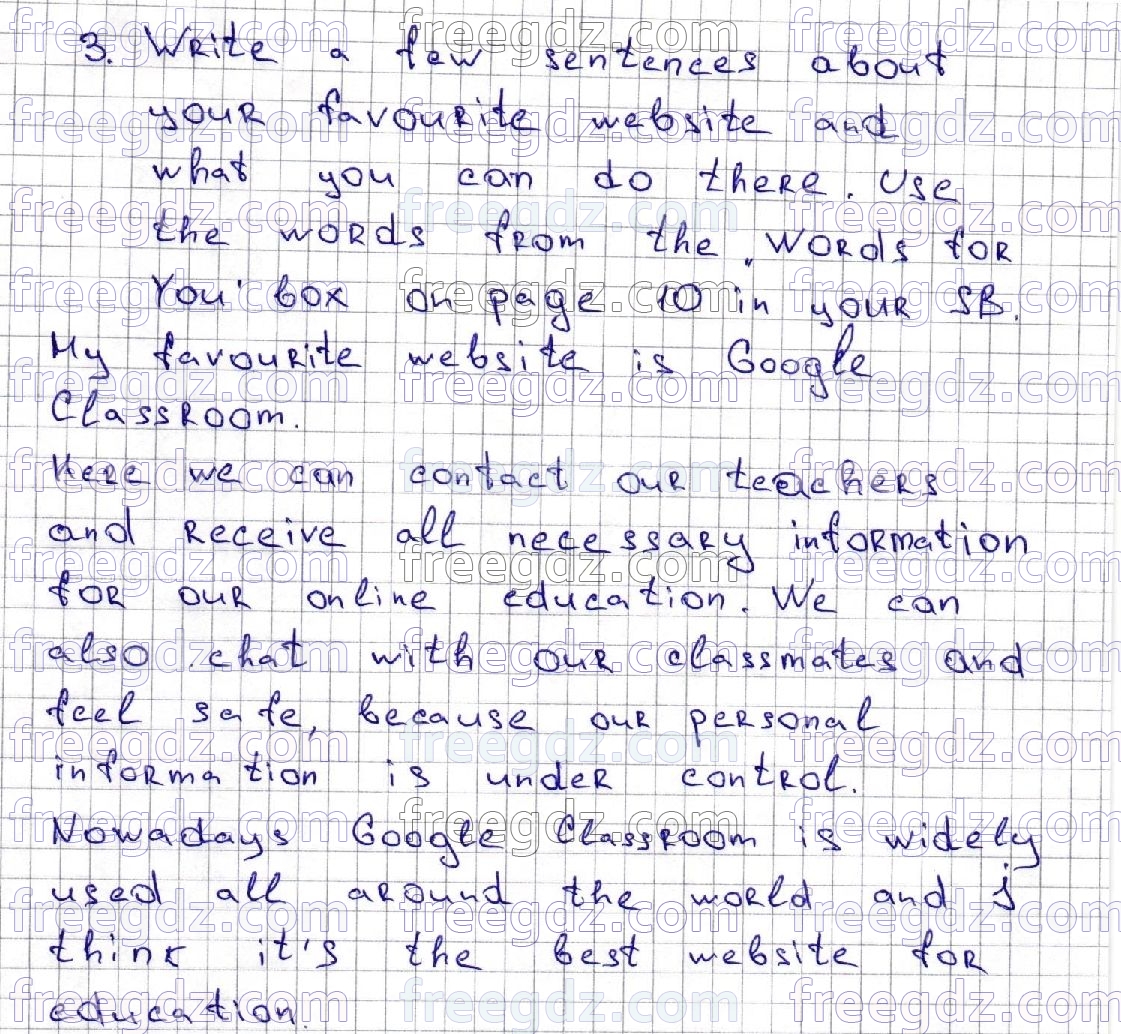 3. Write a few sentences about
your favourite website and
what you can do there. Use
the words from the „Words for
You" box on page 10 in your SB.
My favourite website is Google
Classroom.
Here we can contact our teachers
and receive all necessary information
for our online education. We can
also chat with our classmates and
feel safe, because our personal
information is under control.
Nowadays Google Classroom is widely
used all around the world and i
think it's the best website for
education.
freegdz.com